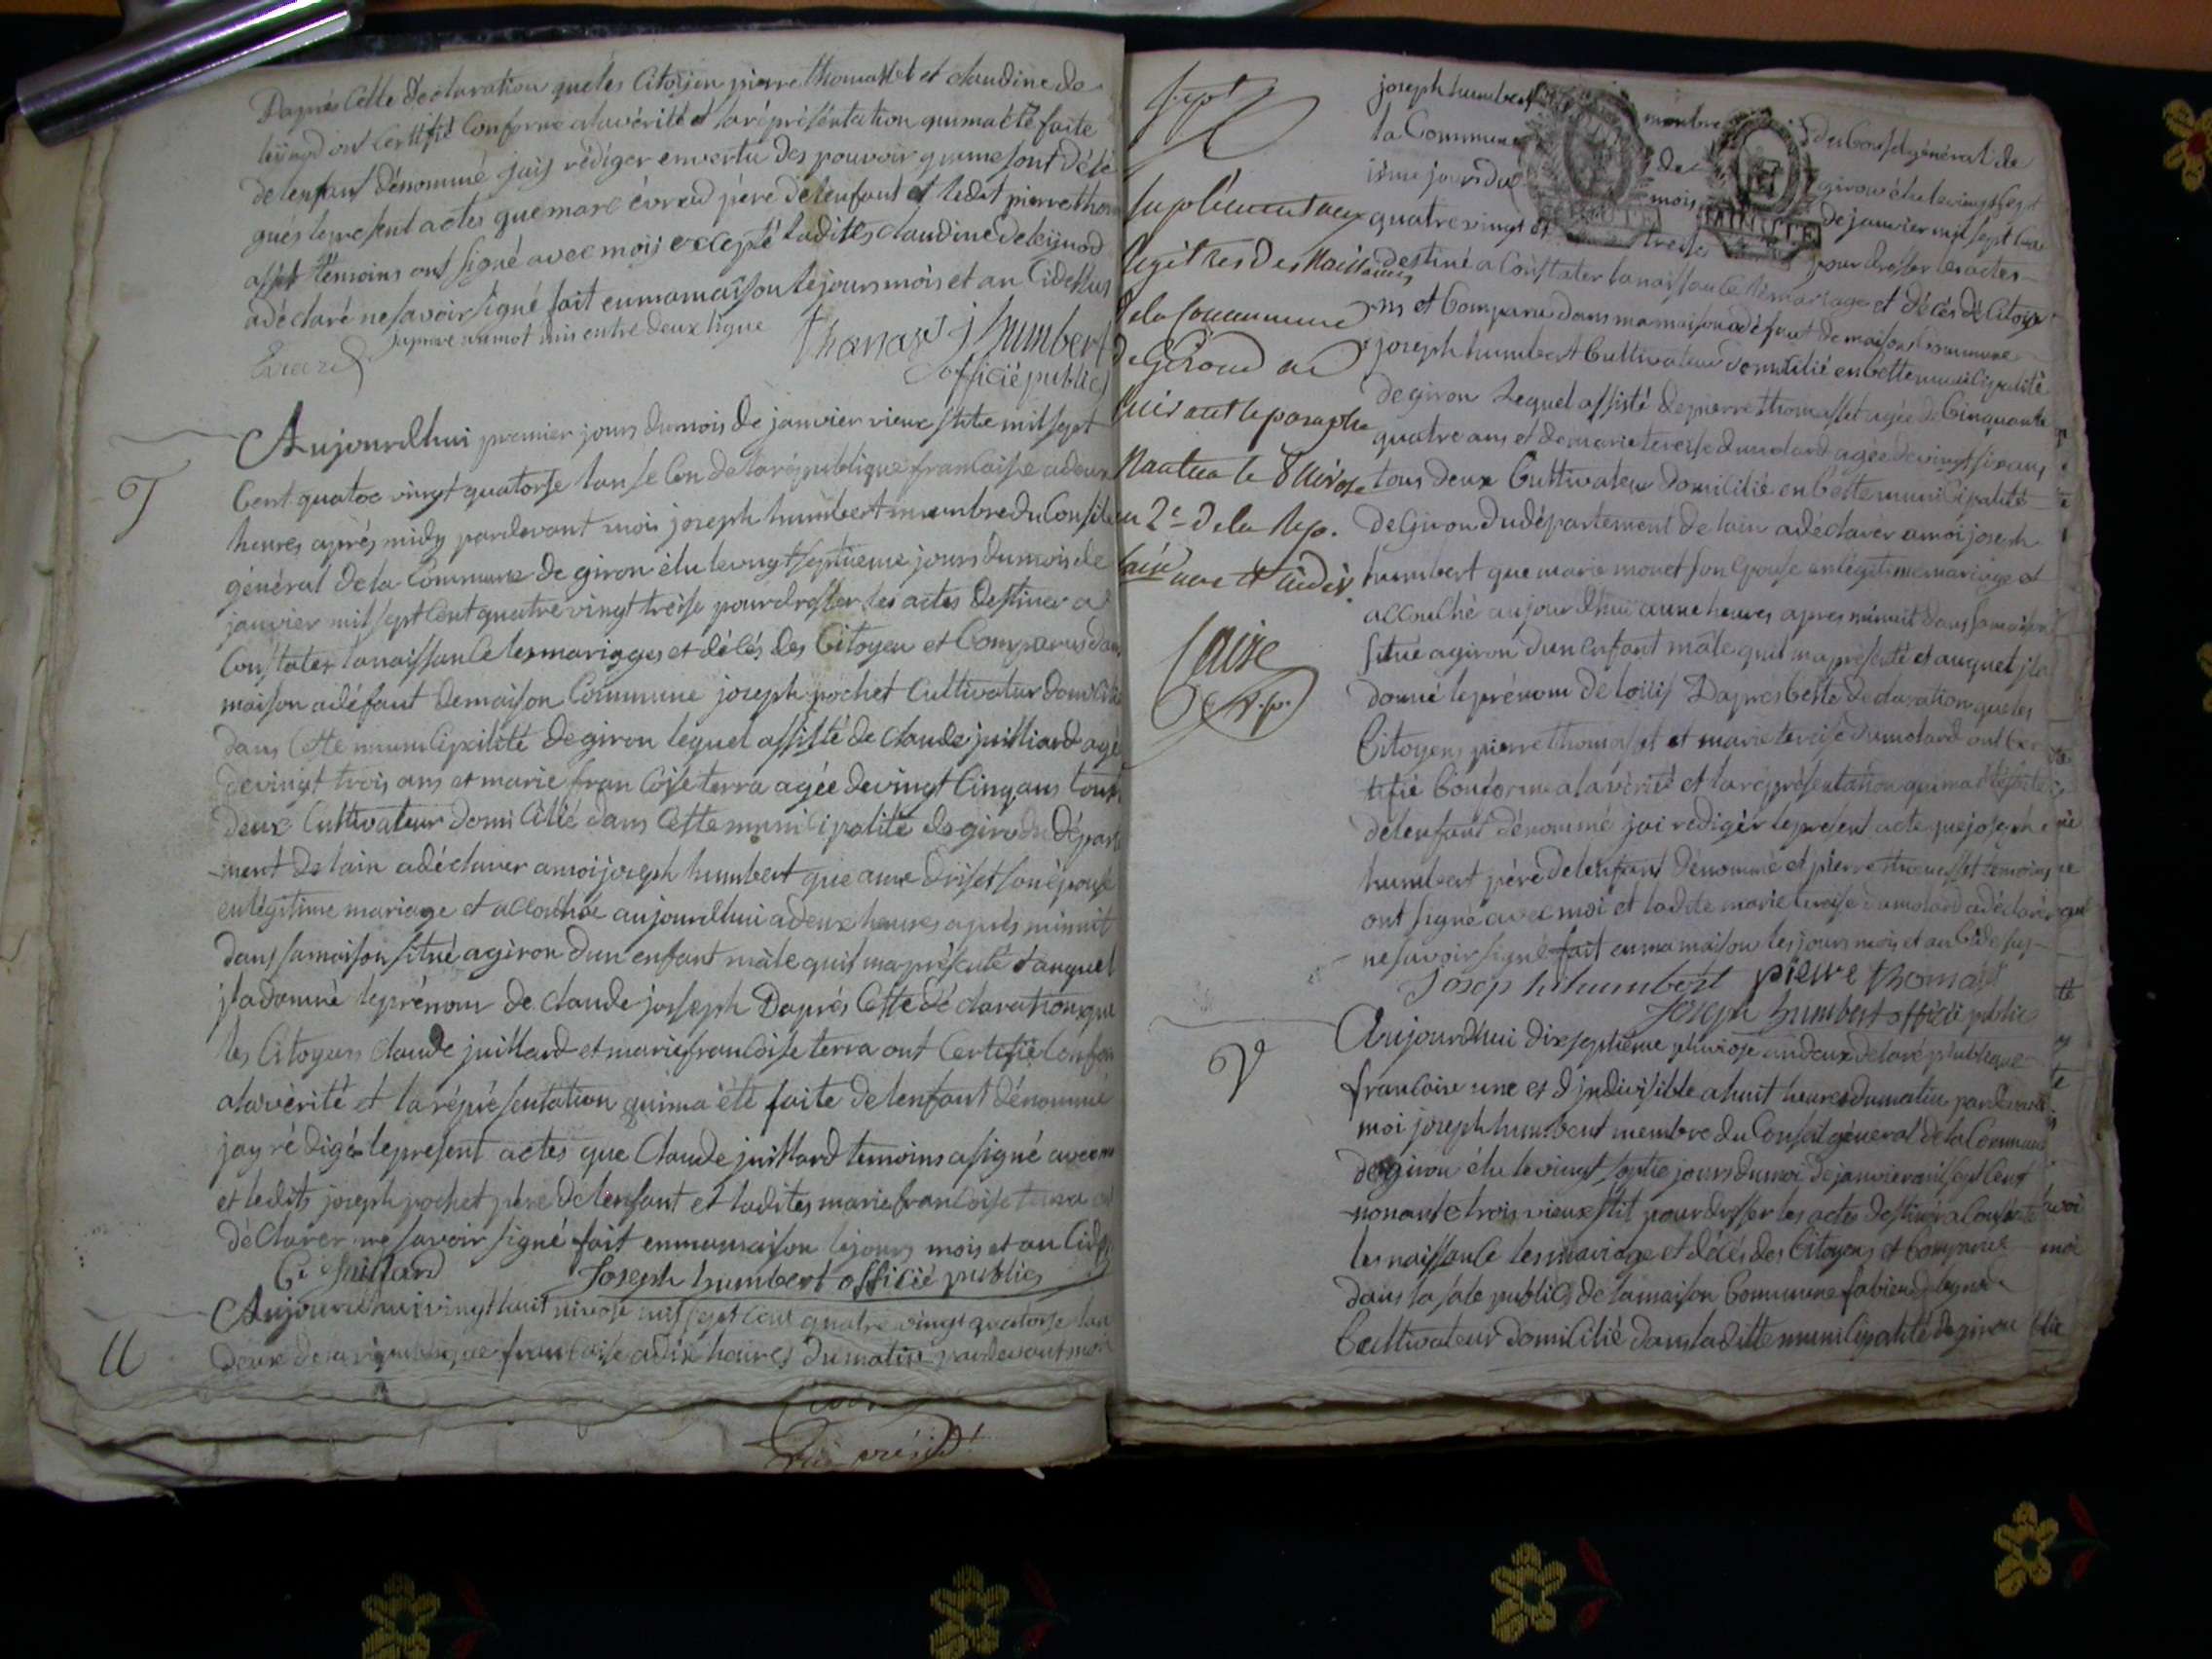 Daprés Cette declaration queles Citoÿen pierre thomasset et claudine de
leijnod ont Certifié Conforme alavérité et laréprésentation quimaèté faite
delenfant dénommé jaij rédiger envertu des pouvoir quime sont délé
gués leprésent actes quemarc évrad pére delenfant et ledit pierre thom
asset temoins ont signé avec mois excepté ladittes claudine deleijnod
adéclaré nesavoir signé fait enmamaison lejours mois et an Cidessus
japrouve unmot mis entre deux ligne
Evrard
thomast j humbert
officié public
T
Aujourdhui premier jours dumois de janvier vieux stile mil sept
Cent quatre vingt quatorse lan se Con de larépublique francaise adeux
heures aprés midy pardevant mois joseph humbert membre du Conseil
général de la Commune de giron élu levingt septieme jours dumois de
janvier mil sept Cent quatre vingt treise pour dresser les actes destiner a
Constater lanaissance les mariages et décés des Citoyen et Comparus dans
maison adéfaut demaison Commune joseph pochet Cultivatur domicilié
dans Cette municipalité de giron lequel assisté de claude juilliard agé
devingt trois ans et marie fran coise terra agée devingt Cinq ans tout
deux Cultivateur domi Cilié dans Cette muni cipalité de giron du départ
-ment de lain adéclarer amoi joseph humbert que anne driset son épouse
enlégitime mariage et accouchée aujourdhui adeux heures aprés minuit
dans samaison situé agiron dun enfant mâle quil ma présenté et auquel
jl adonné leprénom de claude josseph Daprés Cette dé claration que
les Citoyens claude juillard et marie francoise terra ont Certifié Confor
alavérité et la réprésentation quima été faite delenfant dénommé
jay rédigé le present actes que Claude juillard temoins asigné avec m
et ledits joseph pochet pére delenfant et ladites marie francoise terra
déclarer ne savoir signé fait enmamaison lejours mois et an Cides
C. juillard Joseph humbert officié publies
U
Aujourdhui vingt huit nivose mil sept Cent quatre vingt quatorse lan
deux de la république francaise adix heures du matin pardevant moi
sept
Suplément aux
Registres des Naissances
de la Commune
de Giron
Suivant le paraphe
Nantua le 8 Nivose
an 2e de la Rep.
une et indiv.
joseph humbert membre du Conseil général de
la Commune de giron élu levingt sept
iéme jours du mois de janvier mil sept Cen
quatre vingt treise pour dresser les actes
destiné a Constater lanaissance lémariage et décés dé Citoye
ns et Comparu dans mamaison adéfaut demaison Commune
joseph humbert Cultivateur domicilié en Cette municipalité
de giron Lequel assisté de pierre thomasset agée de Cinquante
quatre ans et de marie terese dumolard agée devingt six ans
tous deux Cultivateur domicilié en Cette municipalité
de Giron du département de lain adéclarér amoi joseph
humbert que marie monet son épouse enlégitime mariage et
accouché aujourdhui aune heures apres minuit dans samaison
situé agiron dun enfant mâle quil maprésenté et auquel jl a
donné leprénom de loüis Daprés Cette déclaration que les
Citoyens pierre thomasset et marie terese dumolard ont Cer
tifié Conforme alavérité et laréprésentation quimaétéfaite
délenfant dénommé jai redigér le present acte que joseph
humbert pére delenfant dénommé et pierre thomasset temoins
ont signé avec moi et ladite marie terese dumolard adéclaré
nesavoir signé fait enmamaison lesjours mois et an Cidessus
Joseph humbert pierre thomast
Joseph humbert officié publies
V
Aujourdhui dixseptiéme pluviose andeux delarépublique
francoise une et jndivisible ahuit heures dumatin pardevant
moi joseph humbert membre du Conseil géneral de la Commune
de giron élu levingt septie jours dumoi de janvier mil sept Cent
nonante trois vieux stil pour dresser les actes destiner a Constater
les naissance les mariage et décés des Citoyens et Comparue
dans la sale publies de lamaison Commune fabien deleynod
Cultivateur domicilié dans ladite municipalité de giron